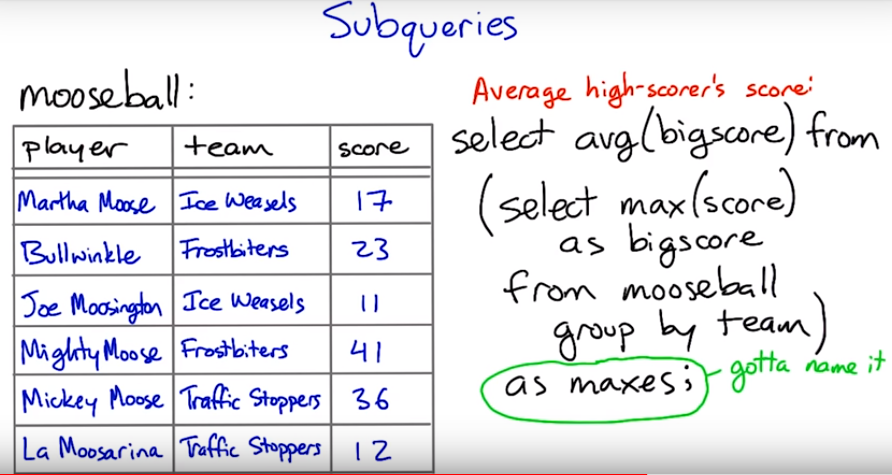 Subqueries
mooseball:
player team score
Martha Moose Ice Weasels 17
Bullwinkle Frostbiters 23
Joe Moosington Ice Weasels 11
Mighty Moose Frostbiters 41
Mickey Moose Traffic Stoppers 36
La Moosarina Traffic Stoppers 12
Average high-scorer's score:
select avg(bigscore) from
(select max(score)
as bigscore
from mooseball
group by team)
as maxes; gotta name it